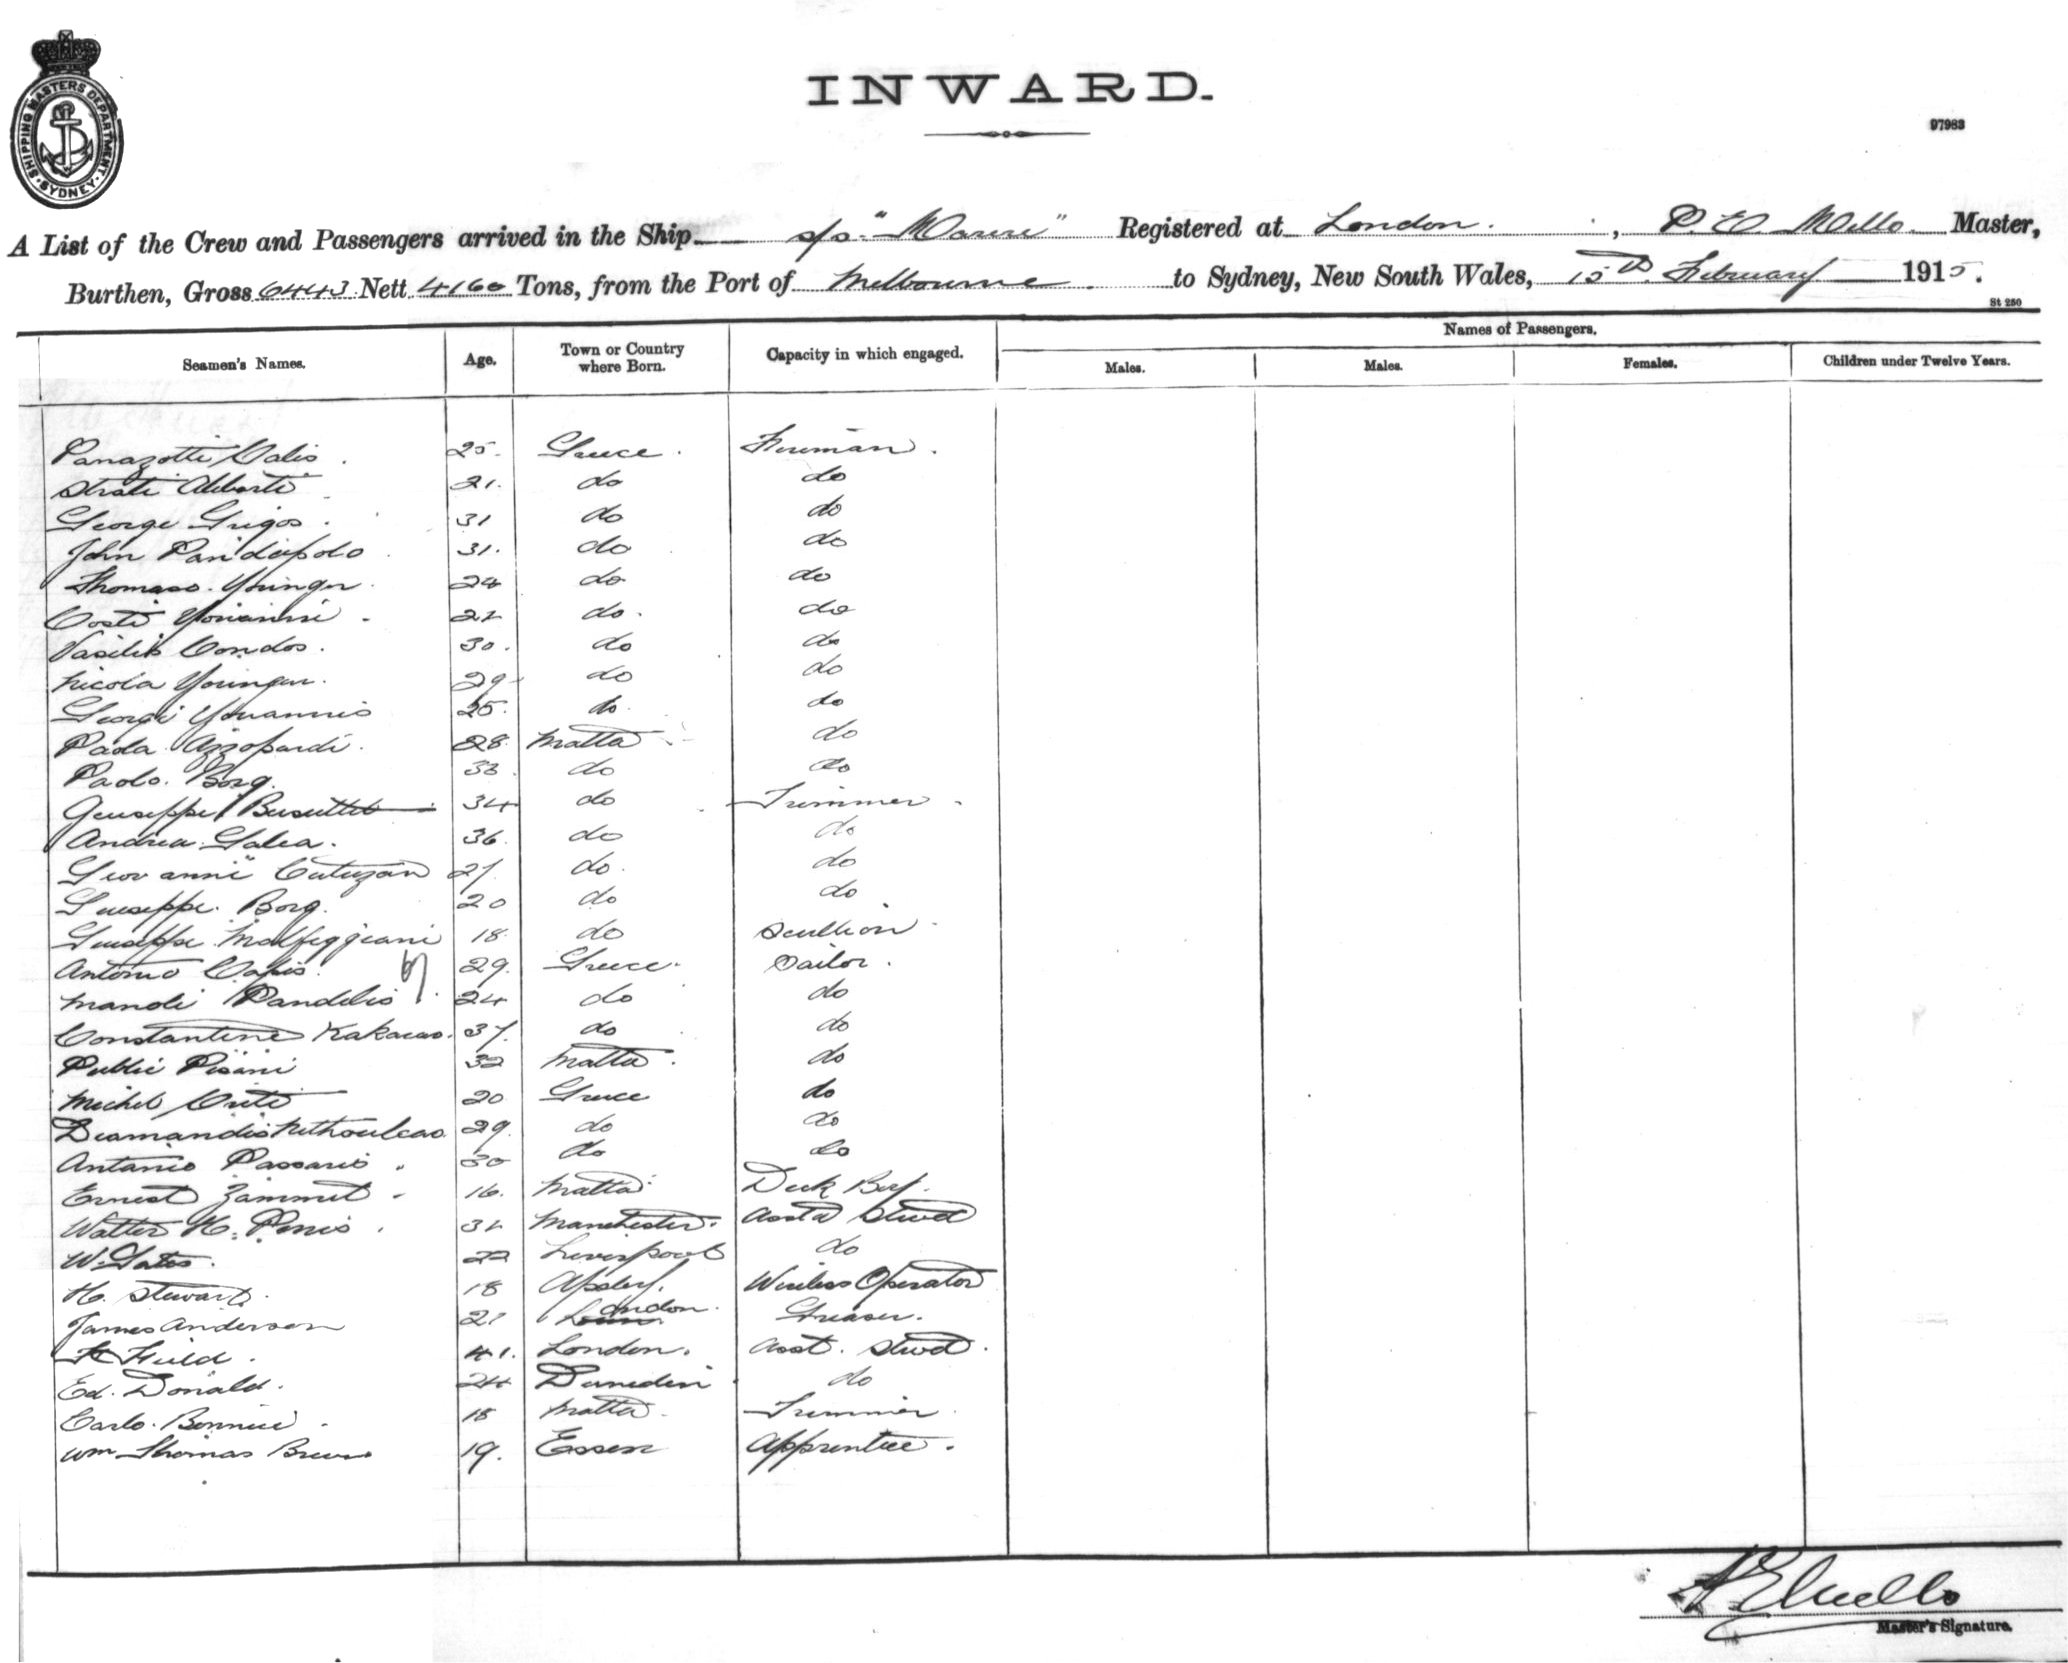 SHIPPING MASTERS DEPARTMENT · SYDNEY ·
INWARD.
97983
A List of the Crew and Passengers arrived in the Ship s/s Registered at London. , P. E. Mello Master,
Burthen, Gross 6443 Nett 4160 Tons, from the Port of Melbourne. to Sydney, New South Wales, 15th February 1915.
St 250
Names of Passengers.
Seamen's Names. Age. Town or Country where Born. Capacity in which engaged. Males. Males. Females. Children under Twelve Years.
Panazotti Valis. 25. Greece. Fireman.
Strati 21. do do
George Grigos. 31 do do
John 31. do do
Thomas Youngu 24 do do
Costi 22 do. do
Vasilis Condos. 30. do do
Nicola 29 do do
Georgi Youannis 25. do do
Paola Azzopardi. 28 Malta do
Paolo. Borg. 33 do do
Geuseppe Busuttil 34 do Trimmer.
Andrea Galea. 36 do do
Giovanni 27. do. do
Guiseppe. Borg. 20 do do
Guiseppe 18 do Scullion.
Antonio 29. Greece. Sailor.
Manoli Pandelis 24 do do
Constantine Kakacas. 37. do do
Public Pisani 32 Malta. do
Michel Criti 20 Greece do
Diamandis 29. do do
Antanio Passaris. 30 do do
Ernest Zammit 16. Malta Deck Boy.
Walter H. 32 Manchester. Asstd Stwd
W. Gates. 22 Liverpool do
H. Stewart. 18 Apsley. Wireless Operator
James Anderson 21 London. Greaser.
Field. 41. London. Asst. Stwd.
Ed. Donald. 24 Dunedin do
Carlo. Bonnici. 18 Malta. Trimmer
Wm Thomas 19. Essex Apprentice.
P E Mello
Master's Signature.